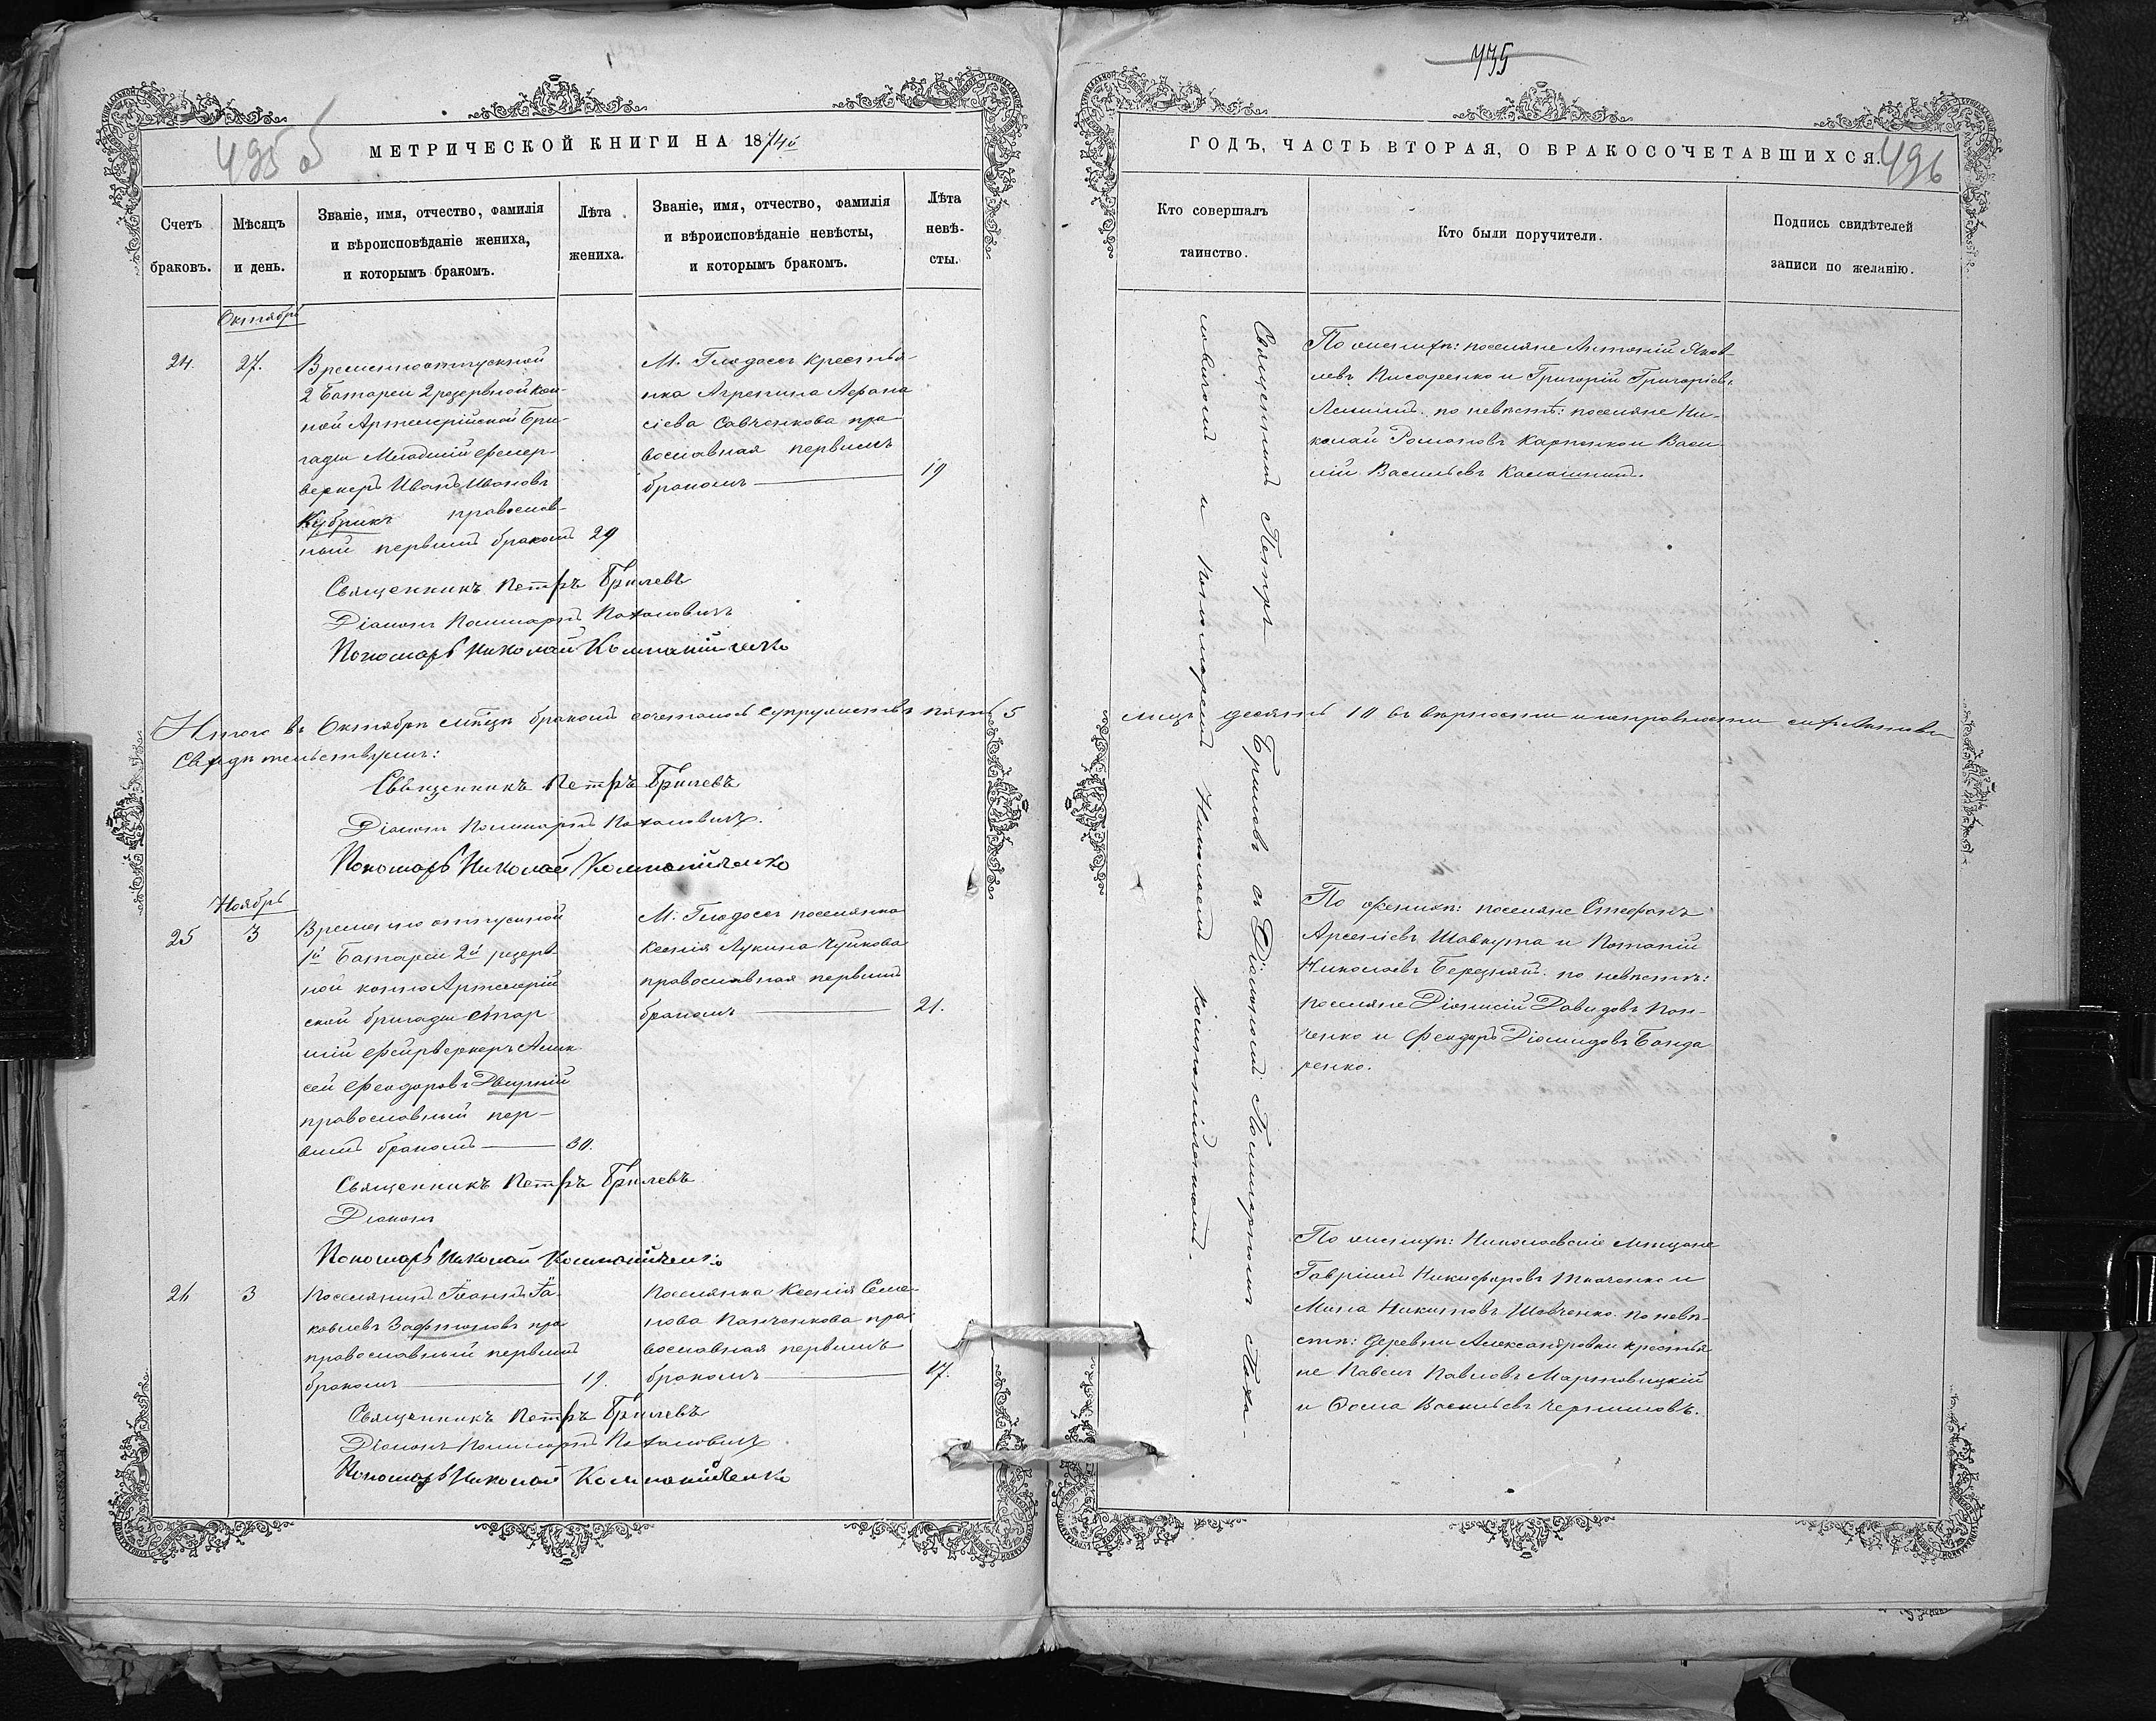 495 об
МЕТРИЧЕСКОЙ КНИГИ НА 1874й
Счетъ браковъ.
Мѣсяцъ и день.
Званіе, имя, отчество, фамилія
и вѣроисповѣданіе жениха,
и которымъ бракомъ.
Лѣта жениха.
Званіе, имя, отчество, фамилія
и вѣроисповѣданіе невѣсты,
и которымъ бракомъ.
Лѣта невѣ-
сты.
Октябрь
24. 27.
Временноотпускной
2 Батареи 2 резервной кон-
ной Артилерійской Бри-
гады Младшій феер-
веркеръ Иванъ Ивановъ
Кубрикъ православ-
ный первымъ бракомъ 29
М. Глодоссъ крестья-
нка Агрепина Афана
сіева Савченкова пра
вославная первымъ
бракомъ 19
Священникъ Петръ Брилевъ
Діаконъ
Пономарь Николай Компанійченко
Итого въ Октябрѣ мѣсцѣ бракомъ сочеталось супружествъ пять 5
Свѣдѣтельствуемъ:
Священникъ Петръ Брилевъ
Діаконъ
Пономарь Николай Компанійченко
Ноябрь
25 3
Временно отпускной
1й Батареи 2й резерв
ной конно Артилерій
ской бригады Стар
шій фейрверкеръ Алек
сей Феодоровъ Дворній
православный пер-
вымъ бракомъ 30.
М. Глодоссъ поселянка
Ксенія Лукина Чуйкова
православная первымъ
бракомъ 21.
Священникъ Петръ Брилевъ
Діаконъ
Пономарь Николай Компанійченко
26 3
Поселянинъ Іоаннъ Іа-
ковлевъ пра
православный первымъ
бракомъ 19.
Поселянка Ксенія Семе-
нова Панченкова пра
вославная первымъ
бракомъ 17.
Священникъ Петръ Брилевъ
Діаконъ
Пономарь Николай Компанійченко
435
496
ГОДЪ, ЧАСТЬ ВТОРАЯ, О БРАКОСОЧЕТАВШИХСЯ.
Кто совершалъ
таинство.
Кто были поручители.
Подпись свидѣтелей
записи по желанію.
Священникъ Петръ Брилевъ съ Діакономъ
и Пономаремъ Николаемъ Компанійченкомъ.
По женихѣ: поселяне Антоній Яков-
левъ Писаренко и Григорій Григоріевъ
по невѣстѣ: поселяне Ни-
колай Романовъ Карпенко и Васи
лій Васильевъ
лицъ десять 10 въ вѣрности и исправности
По женихѣ: поселяне Стефанъ
Арсеніевъ Шавкута и Потапій
Николаевъ Березняй. по невѣстѣ:
поселяне Діонисій Давидовъ Пан-
ченко и Феодоръ Діомидовъ Бонда
ренко.
По женихѣ: Николаевскіе мѣщане
Гавріилъ Никифоровъ Ткаченко и
Мина Никитовъ Шевченко. по невѣ-
стѣ: деревни Александровки крестья
не Павелъ Павловъ Мартовицкій
и Ѳома Васильевъ